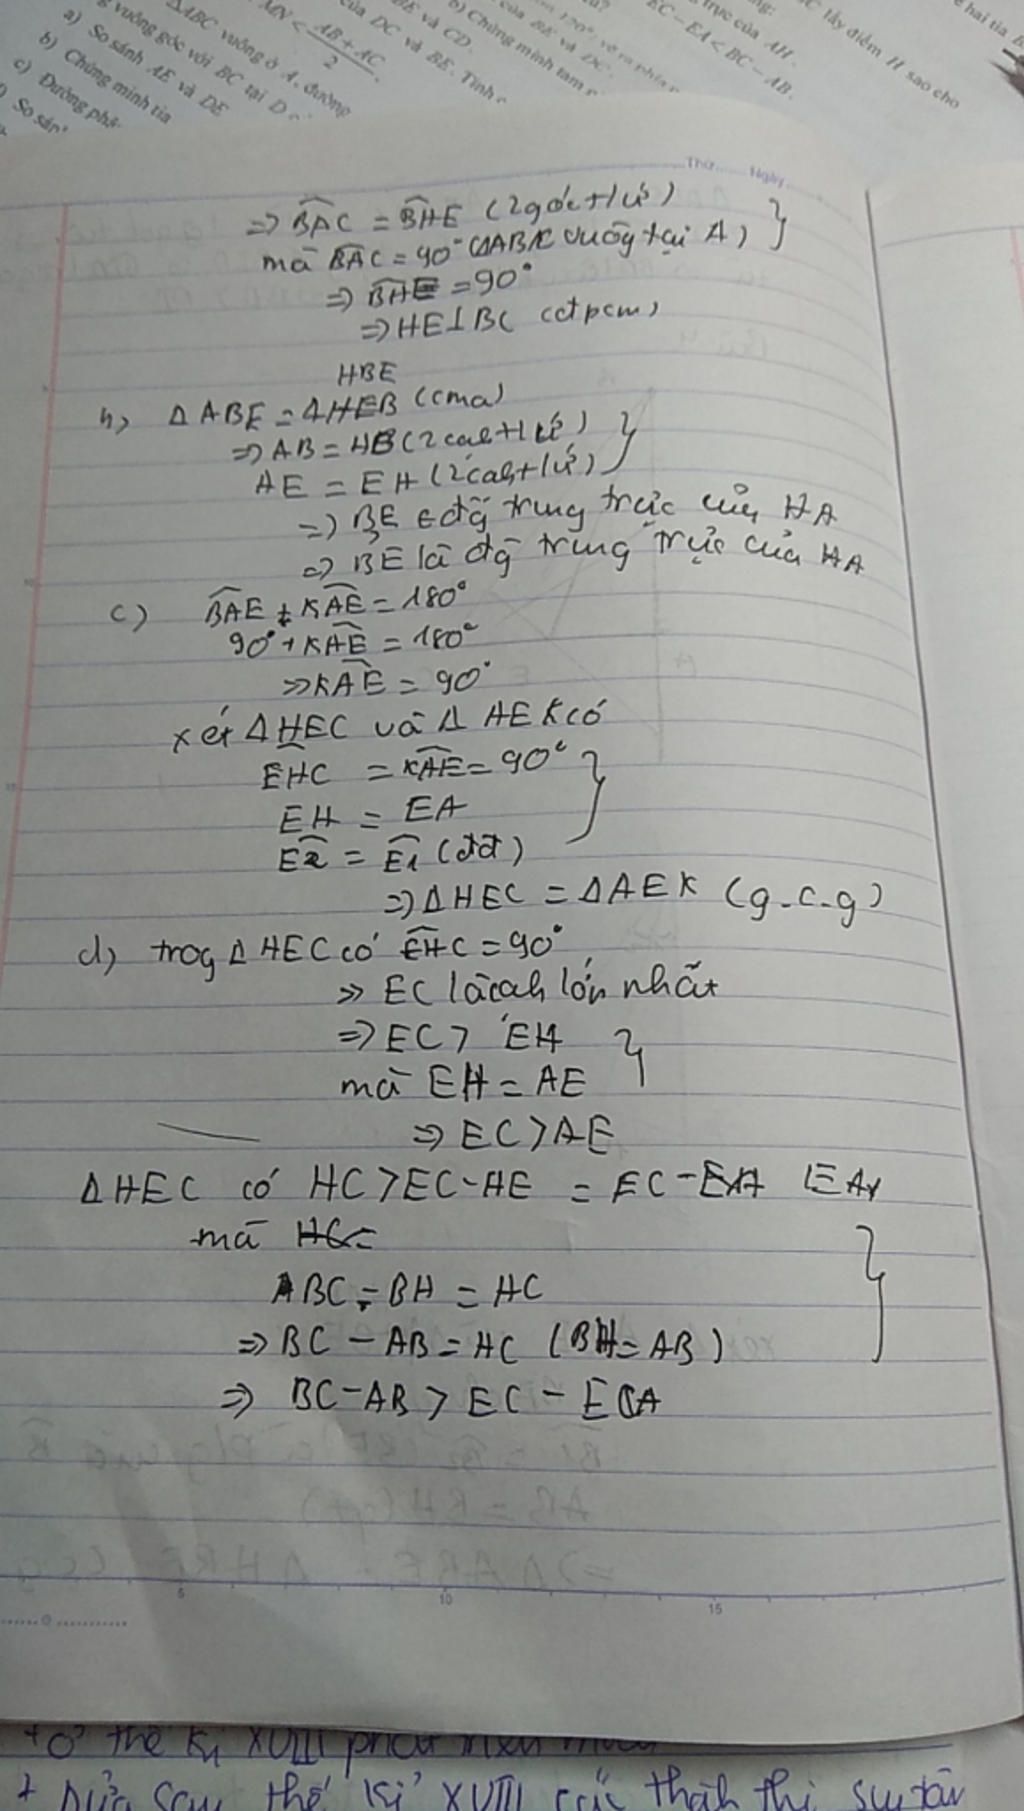 MN < AB + AC / 2
ΔABC vuông ở A, đường
vuông góc với BC tại D
a) So sánh AE và DE
b) Chứng minh tia
c) Đường phâ
So sán
của DC và BE. Tính
BE và CD.
b) Chứng minh tam
của BE và DC.
trực của AH.
EC - EA < BC - AB.
lấy điểm H sao cho
hai tia
Thứ...... Ngày......
=> BAC = BHE (2góc t/ứ)
mà BAC = 90° (ΔABC vuôg tại A)
=> BHE = 90°
=> HE ⊥ BC (đpcm)
HBE
b) Δ ABE = Δ HEB (cma)
=> AB = HB (2cah t/ứ)
AE = EH (2cah t/ứ)
=> BE ∈ đg trung trực của HA
=> BE là đg trung trực của HA
c) BAE + KAE = 180°
90° + KAE = 180°
=> KAE = 90°
xét Δ HEC và Δ AEK có
EHC = KAE = 90°
EH = EA
E2 = E1 (đđ)
=> Δ HEC = Δ AEK (g-c-g)
d) trog Δ HEC có EHC = 90°
=> EC là cah lớn nhất
=> EC > EH
mà EH = AE
=> EC > AE
Δ HEC có HC > EC - HE = EC - EA
mà HC =
BC - BH = HC
=> BC - AB = HC (BH = AB)
=> BC - AB > EC - EA
5
10
15
+ Ở thế kỉ XVIII
+ Nửa sau thế kỉ XVIII các thành thị suy tàn